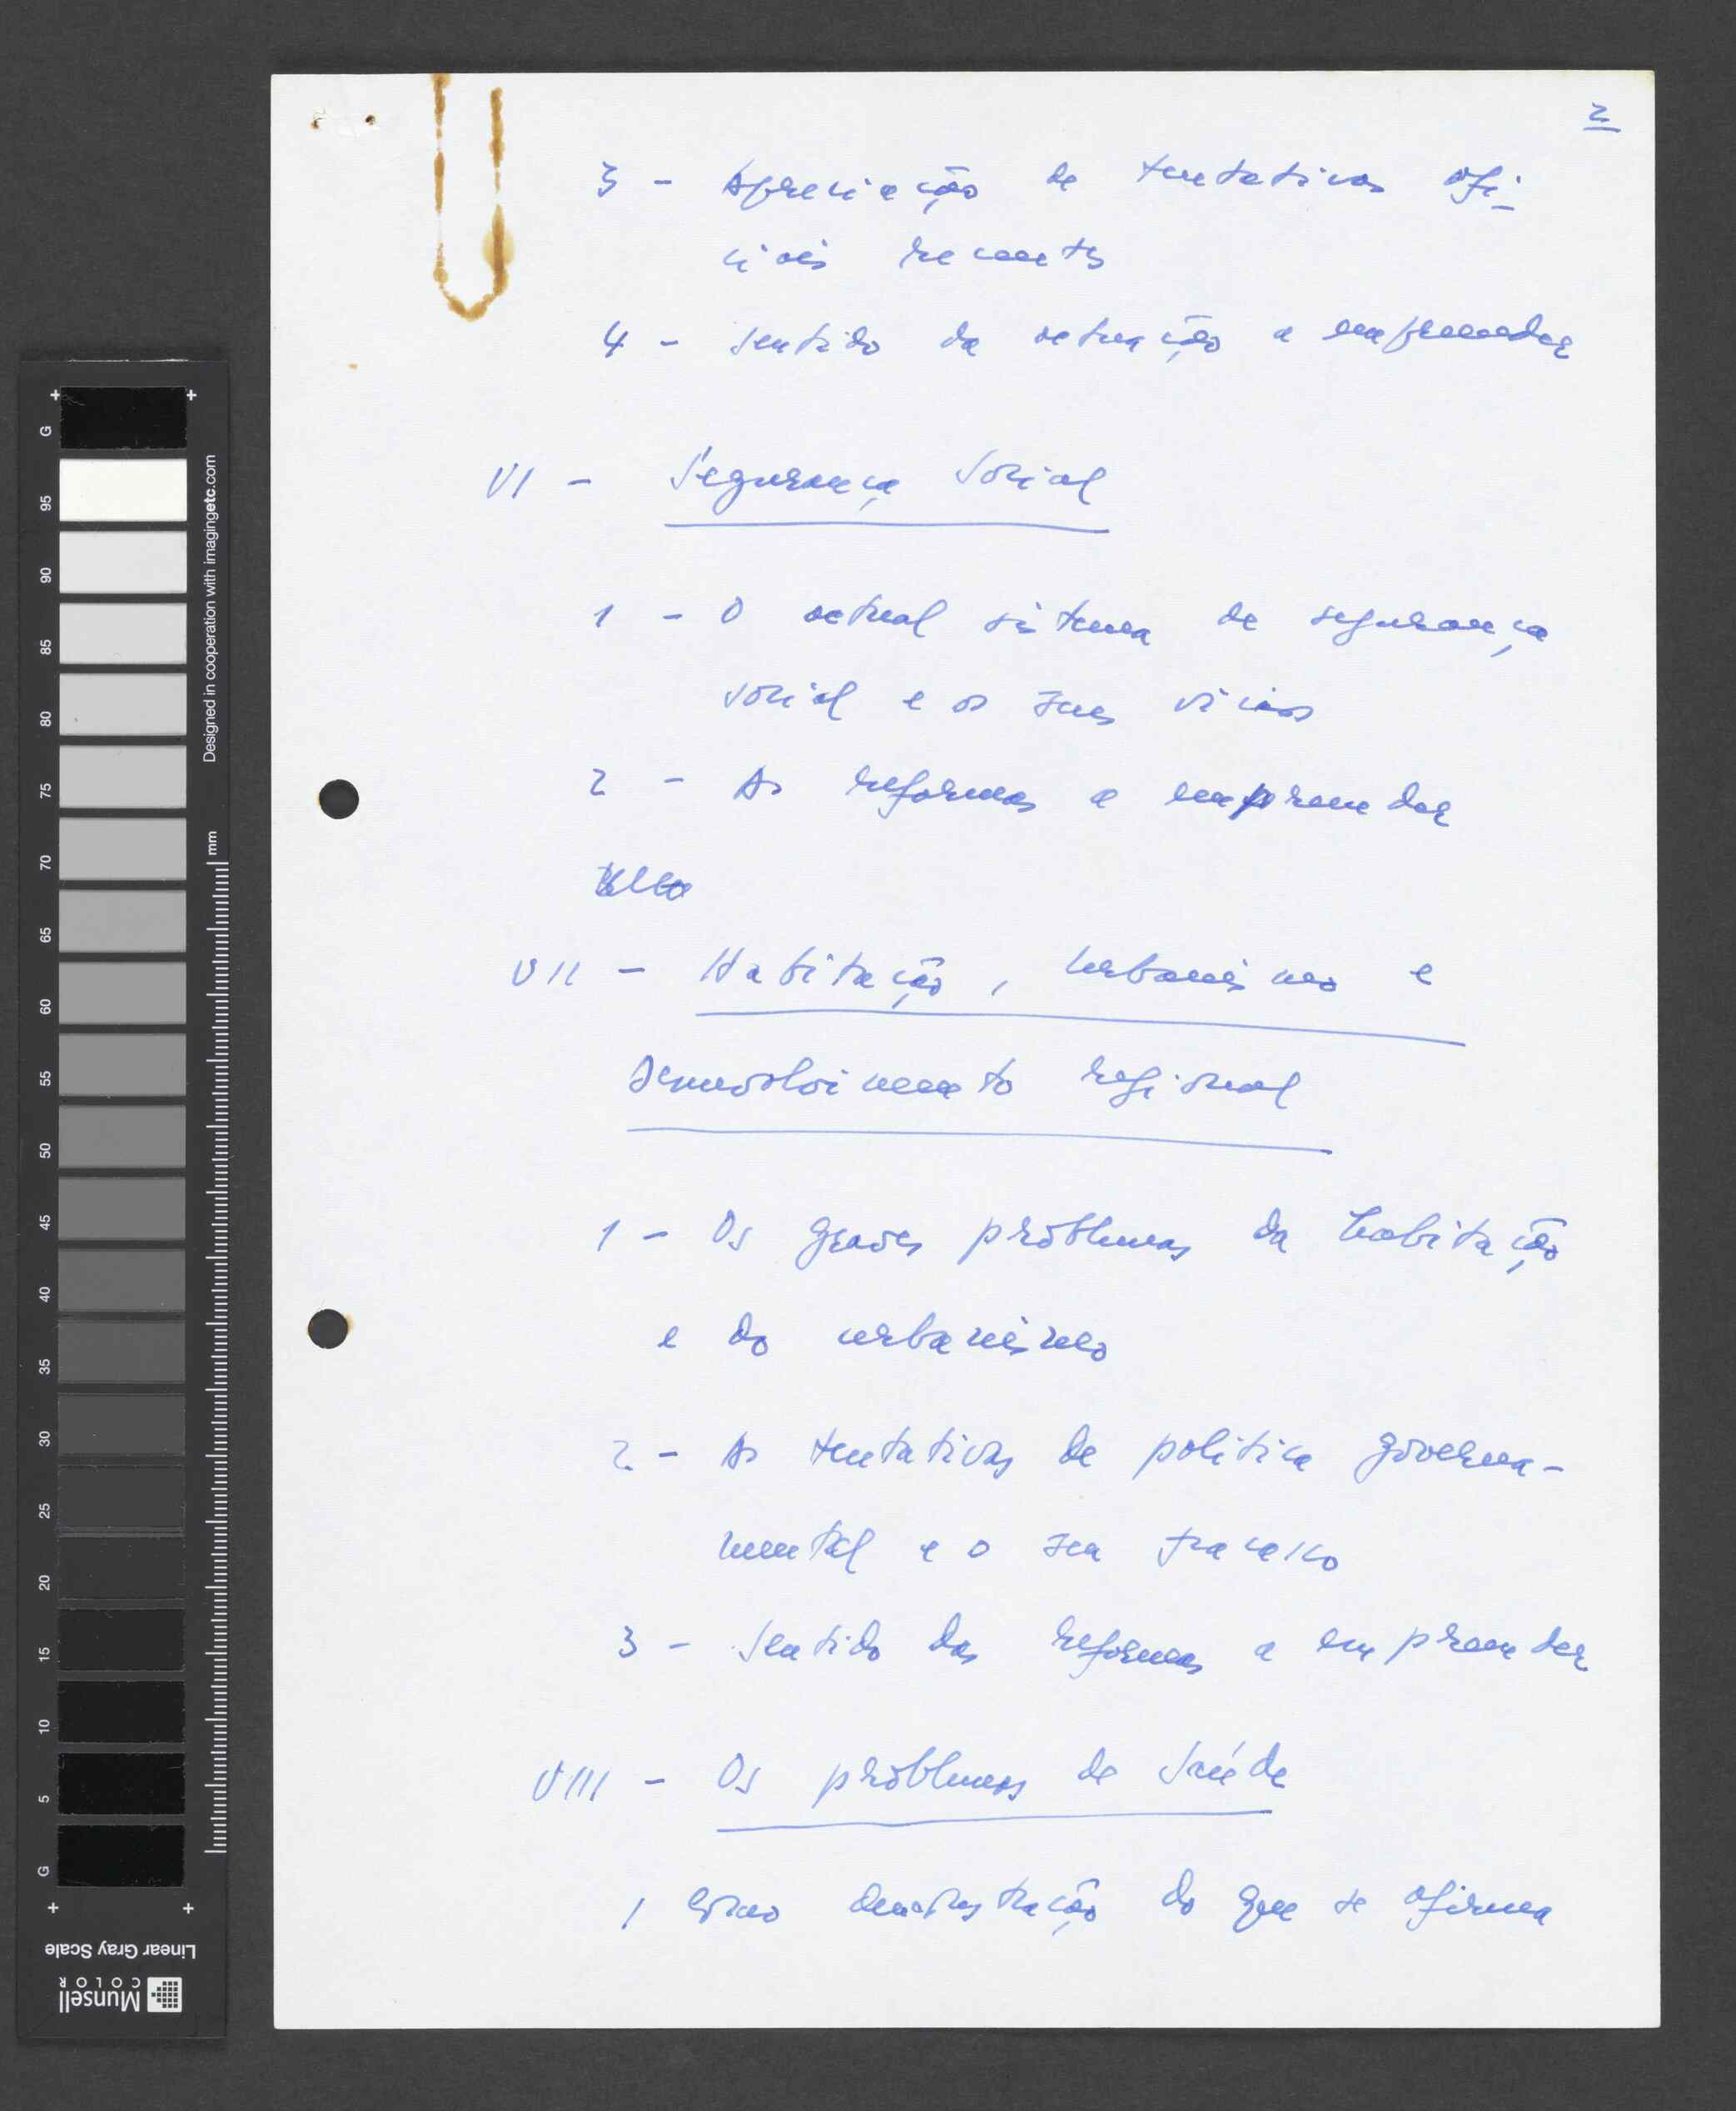 2
3 - Apreciação de tentativas ofi-
ciais recentes
4 - Sentido da actuação a empreender
VI - Segurança Social
1 - O actual sistema de segurança
social e os seus vícios
2 - As reformas a empreender
VII - Habitação, urbanismo e
desenvolvimento regional
1 - Os graves problemas da habitação
e do urbanismo
2 - As tentativas de política governa-
mental e o seu fracasso
3 - Sentido das reformas a empreender
VIII - Os problemas de Saúde
1 Como demonstração do que se afirma
G 95 90 85 80 75 70 65 60 55 50 45 40 35 30 25 20 15 10 5 G
Designed in cooperation with imagingetc.com
mm
Linear Gray Scale
Munsell
COLOR